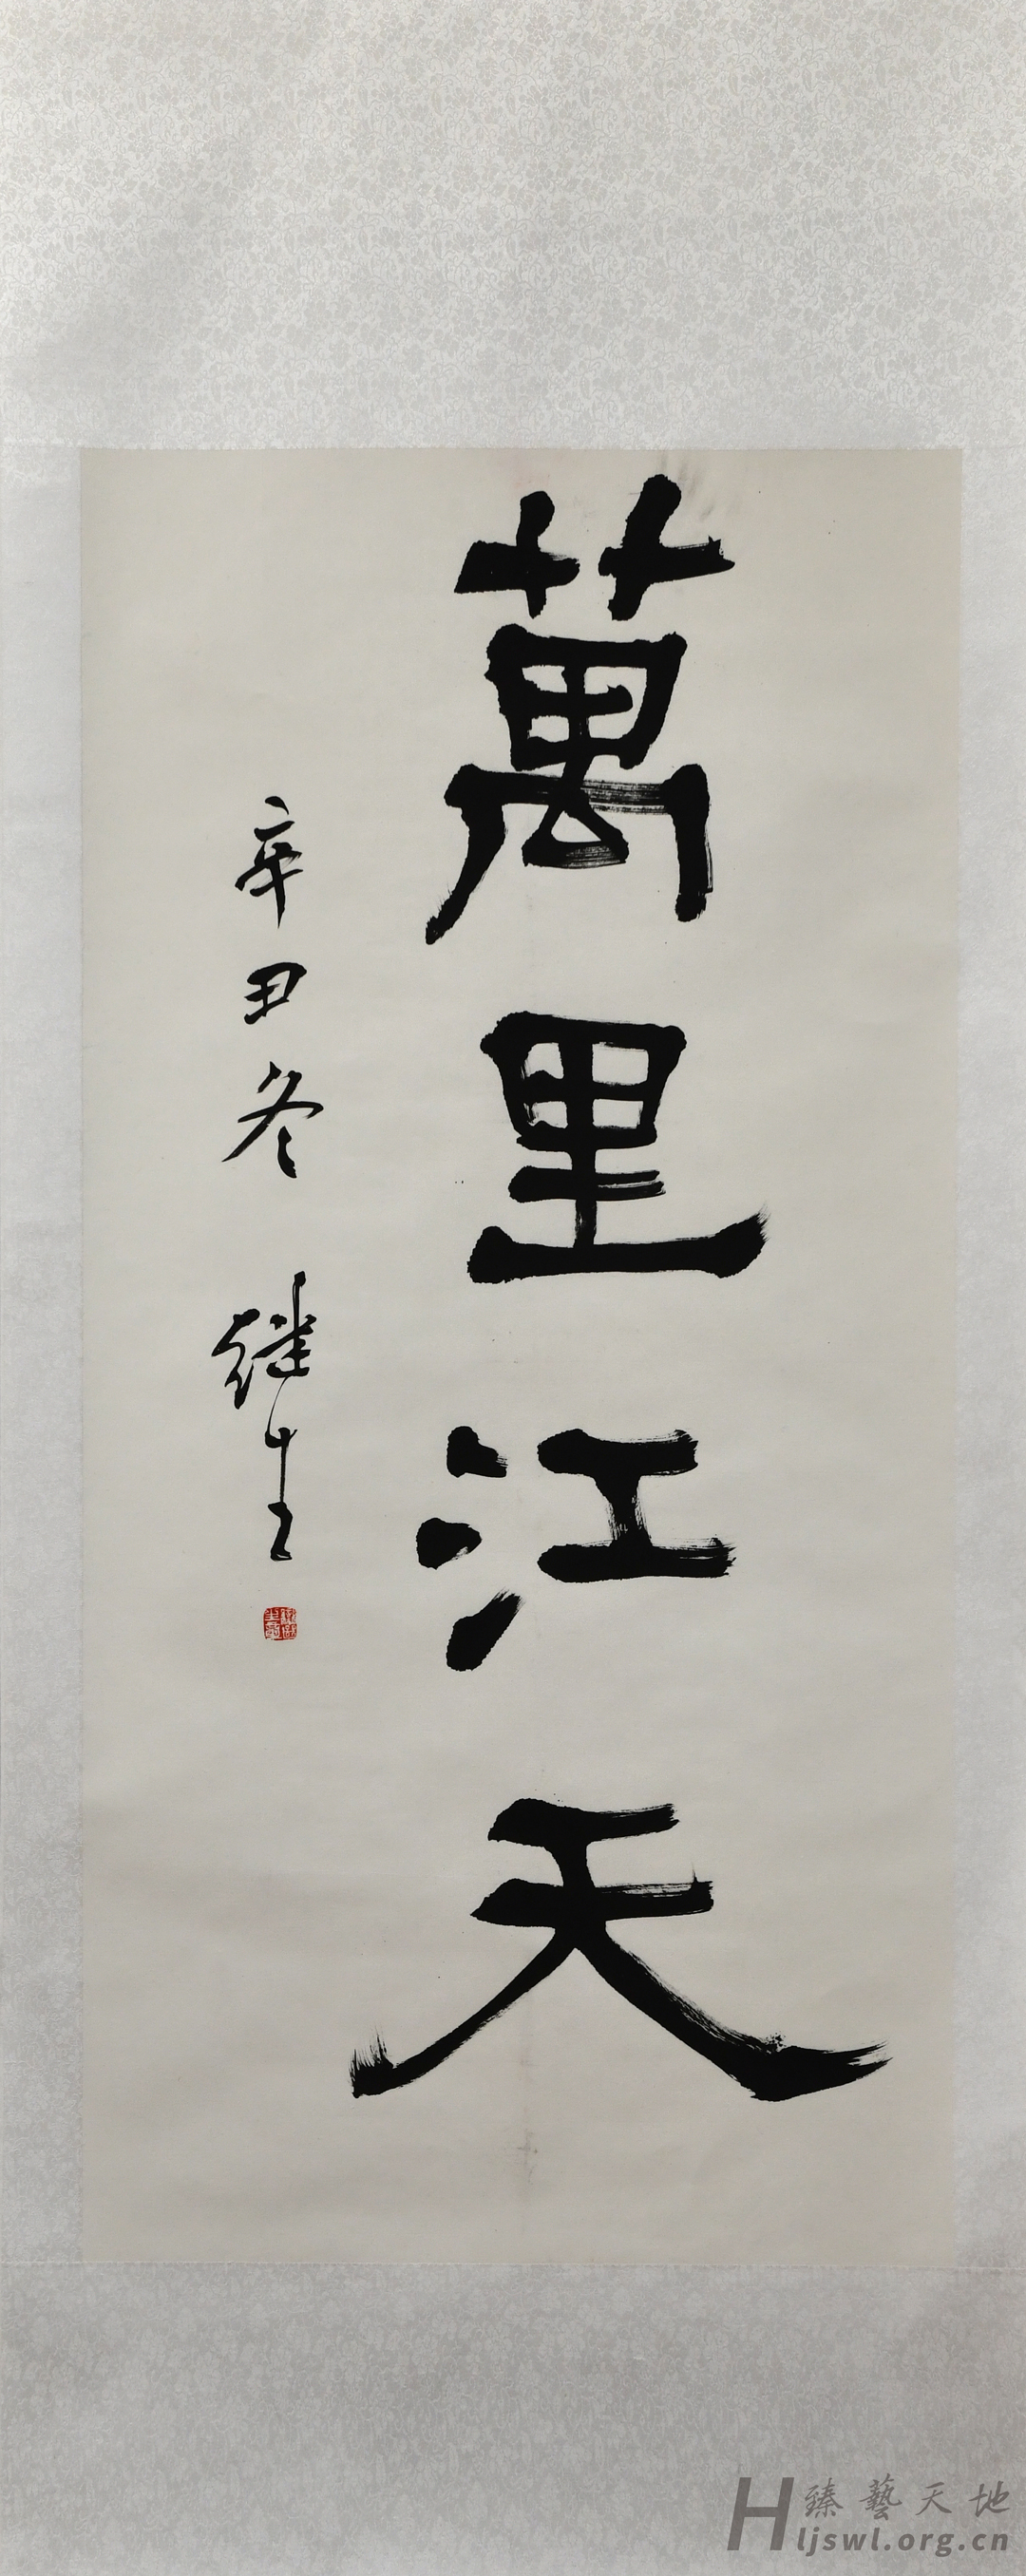 萬里江天
辛丑冬 继生
臻藝天地
Hljswl.org.cn